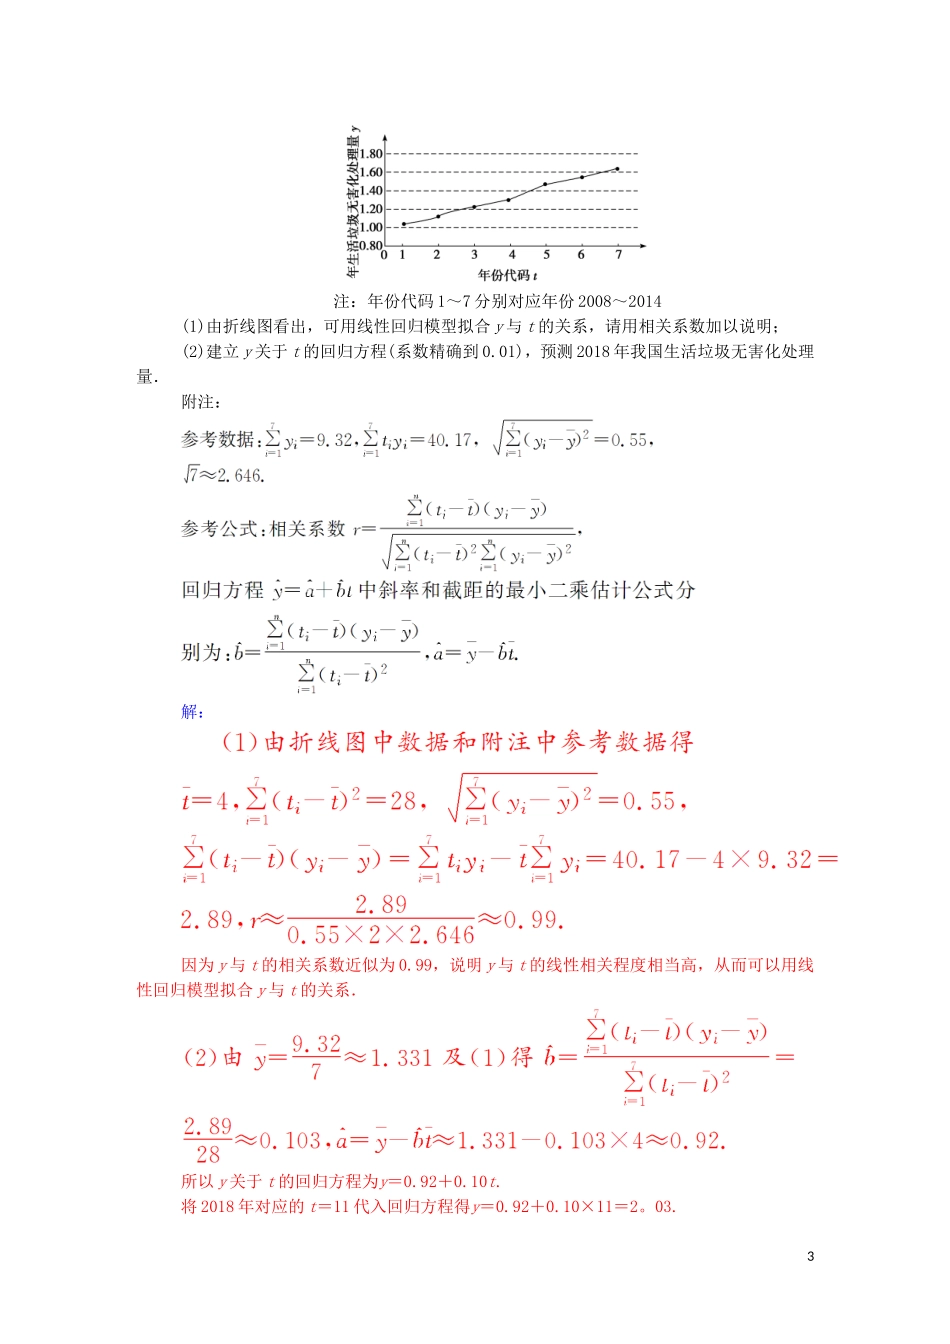 年生活垃圾无害化处理量 y
1.80
1.60
1.40
1.20
1.00
0.80
0 1 2 3 4 5 6 7
年份代码 t
注：年份代码 1～7 分别对应年份 2008～2014
(1)由折线图看出，可用线性回归模型拟合 y 与 t 的关系，请用相关系数加以说明；
(2)建立 y 关于 t 的回归方程(系数精确到 0.01)，预测 2018 年我国生活垃圾无害化处理
量．
附注：
参考数据:∑_{i=1}^{7} y_i=9.32,∑_{i=1}^{7} t_iy_i=40.17, √(∑_{i=1}^{7}(y_i−y̅)²)=0.55,
√7≈2.646.
参考公式:相关系数 r=∑_{i=1}^{n}(t_i−t̅)(y_i−y̅)/√(∑_{i=1}^{n}(t_i−t̅)²∑_{i=1}^{n}(y_i−y̅)²),
回归方程 ŷ=â+b̂t 中斜率和截距的最小二乘估计公式分
别为:b̂=∑_{i=1}^{n}(t_i−t̅)(y_i−y̅)/∑_{i=1}^{n}(t_i−t̅)²,â=y̅−b̂t̅.
解：
(1)由折线图中数据和附注中参考数据得
t̅=4,∑_{i=1}^{7}(t_i−t̅)²=28, √(∑_{i=1}^{7}(y_i−y̅)²)=0.55,
∑_{i=1}^{7}(t_i−t̅)(y_i−y̅)=∑_{i=1}^{7}t_iy_i−t̅∑_{i=1}^{7}y_i=40.17−4×9.32=
2.89,r≈2.89/(0.55×2×2.646)≈0.99.
因为 y 与 t 的相关系数近似为 0.99，说明 y 与 t 的线性相关程度相当高，从而可以用线
性回归模型拟合 y 与 t 的关系．
(2)由 y̅=9.32/7≈1.331 及(1)得 b̂=∑_{i=1}^{7}(t_i−t̅)(y_i−y̅)/∑_{i=1}^{7}(t_i−t̅)²=
2.89/28≈0.103,â=y̅−b̂t̅≈1.331−0.103×4≈0.92.
所以 y 关于 t 的回归方程为y=0.92＋0.10t.
将 2018 年对应的 t＝11 代入回归方程得y=0.92＋0.10×11＝2。03.
3